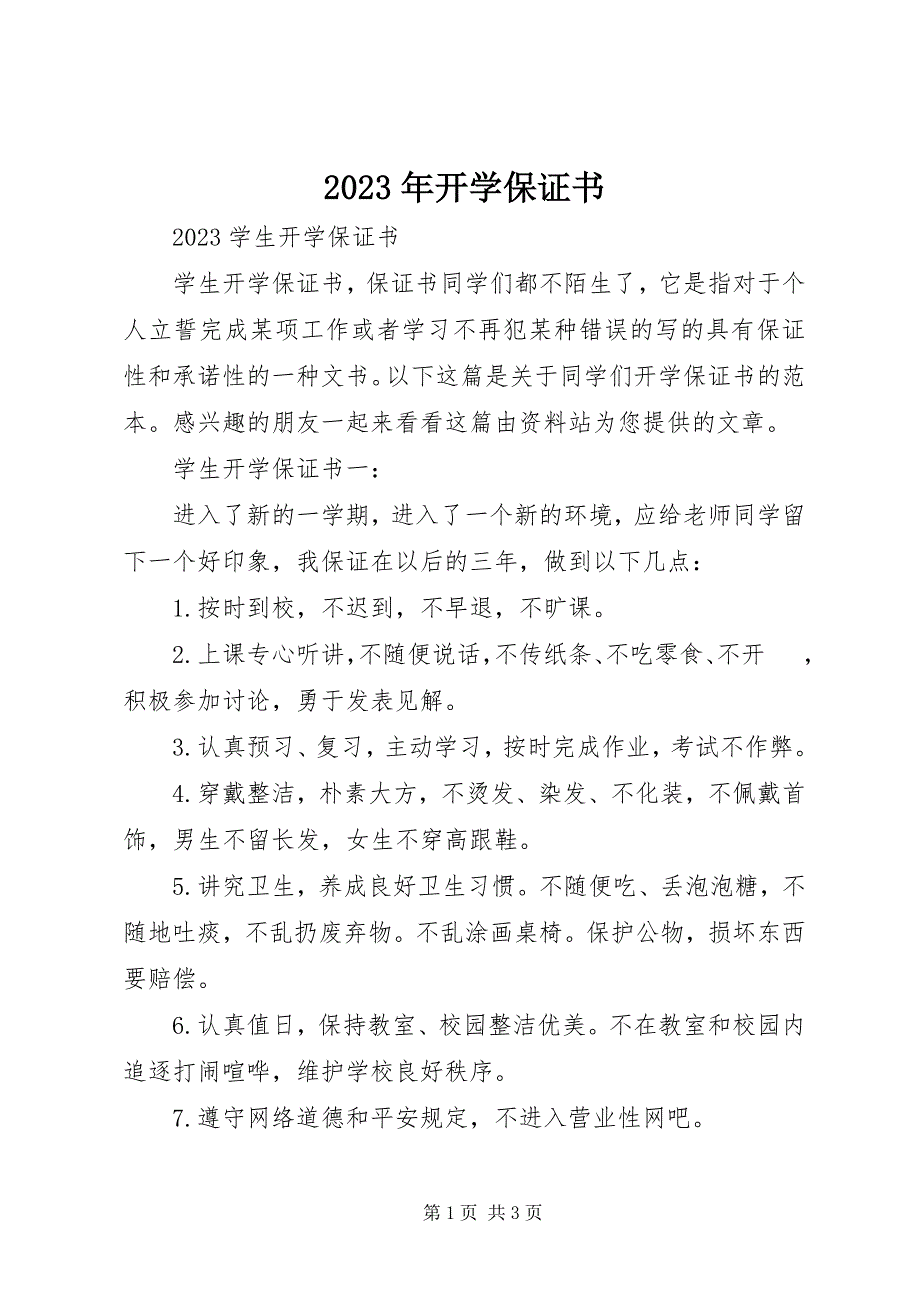 2023 年开学保证书
2023 学生开学保证书
学生开学保证书，保证书同学们都不陌生了，它是指对于个
人立誓完成某项工作或者学习不再犯某种错误的写的具有保证
性和承诺性的一种文书。以下这篇是关于同学们开学保证书的范
本。感兴趣的朋友一起来看看这篇由资料站为您提供的文章。
学生开学保证书一：
进入了新的一学期，进入了一个新的环境，应给老师同学留
下一个好印象，我保证在以后的三年，做到以下几点：
1.按时到校，不迟到，不早退，不旷课。
2.上课专心听讲，不随便说话，不传纸条、不吃零食、不开 ，
积极参加讨论，勇于发表见解。
3.认真预习、复习，主动学习，按时完成作业，考试不作弊。
4.穿戴整洁，朴素大方，不烫发、染发、不化装，不佩戴首
饰，男生不留长发，女生不穿高跟鞋。
5.讲究卫生，养成良好卫生习惯。不随便吃、丢泡泡糖，不
随地吐痰，不乱扔废弃物。不乱涂画桌椅。保护公物，损坏东西
要赔偿。
6.认真值日，保持教室、校园整洁优美。不在教室和校园内
追逐打闹喧哗，维护学校良好秩序。
7.遵守网络道德和平安规定，不进入营业性网吧。
第 1 页 共 3 页